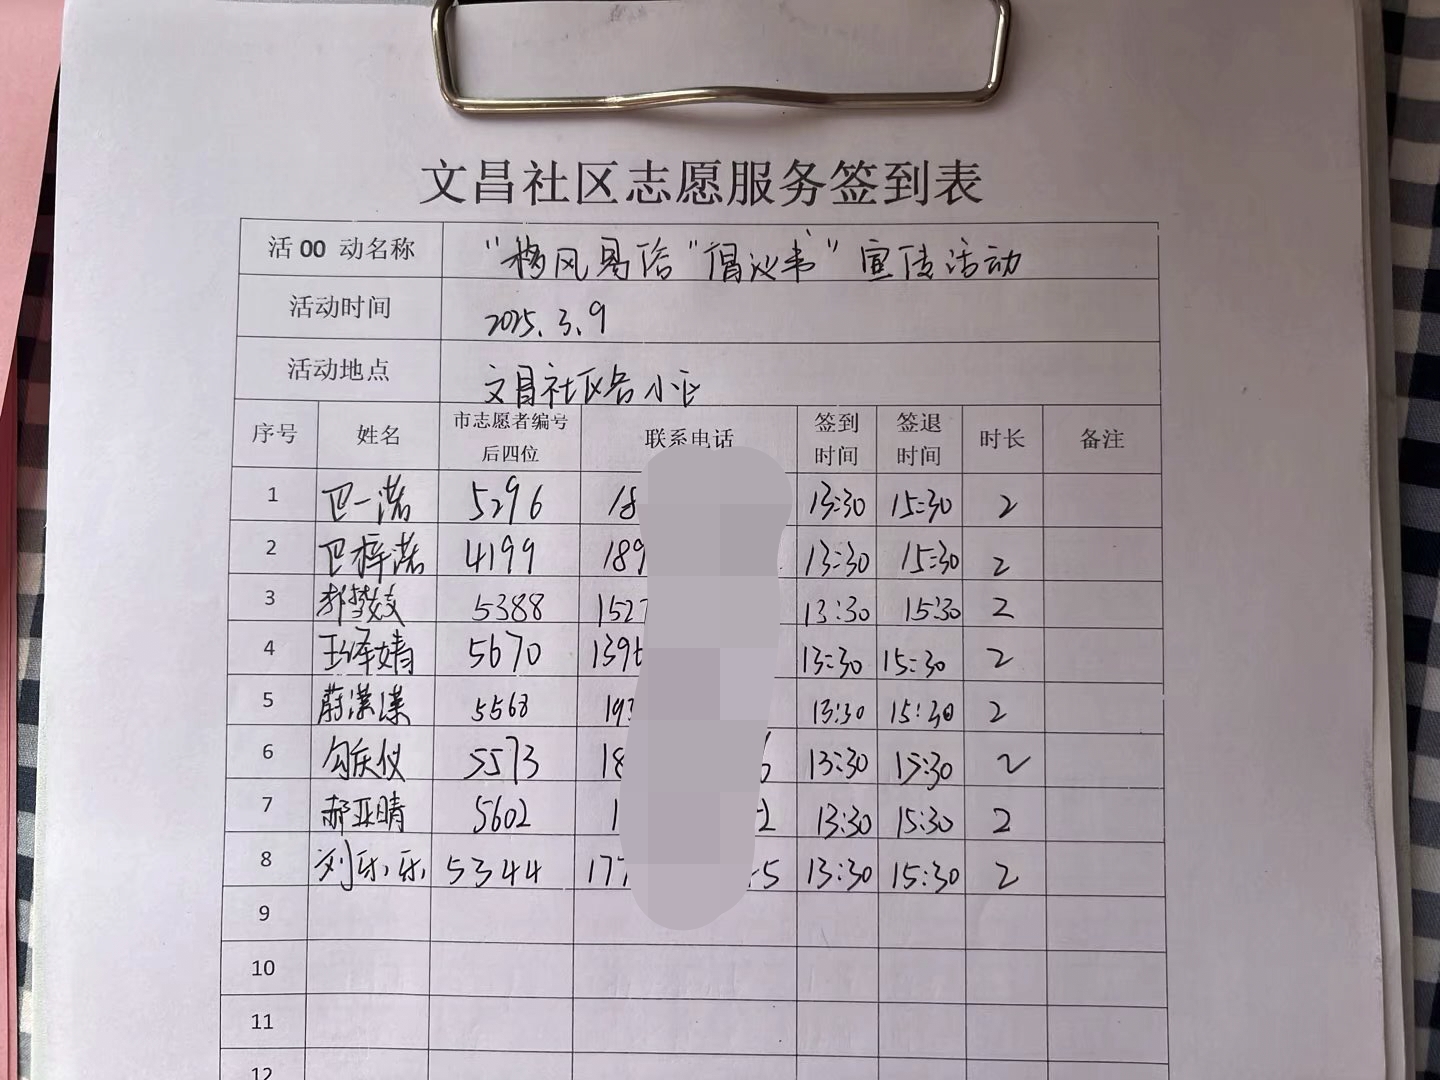 文昌社区志愿服务签到表
活00 动名称 "移风易俗"倡议书"宣传活动
活动时间 2025.3.9
活动地点 文昌社区各小区
序号 姓名 市志愿者编号后四位 联系电话 签到时间 签退时间 时长 备注
1 巴一诺 5296 18 13:30 15:30 2
2 巴梓诺 4199 189 13:30 15:30 2
3 5388 152 13:30 15:30 2
4 王泽婧 5670 139 13:30 15:30 2
5 蔚潇潇 5568 193 13:30 15:30 2
6 勾庆仪 5573 18 13:30 15:30 2
7 郝亚晴 5602 1 2 13:30 15:30 2
8 刘乐乐 5344 177 5 13:30 15:30 2
9
10
11
12